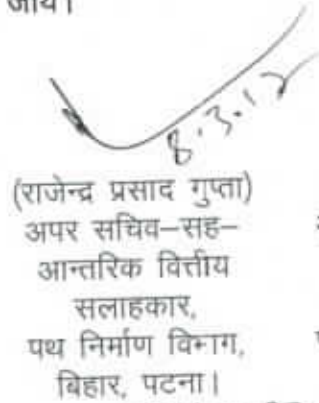 जाय।
8.3.12
(राजेन्द्र प्रसाद गुप्ता)
अपर सचिव–सह–
आन्तरिक वित्तीय
सलाहकार,
पथ निर्माण विभाग,
बिहार, पटना।